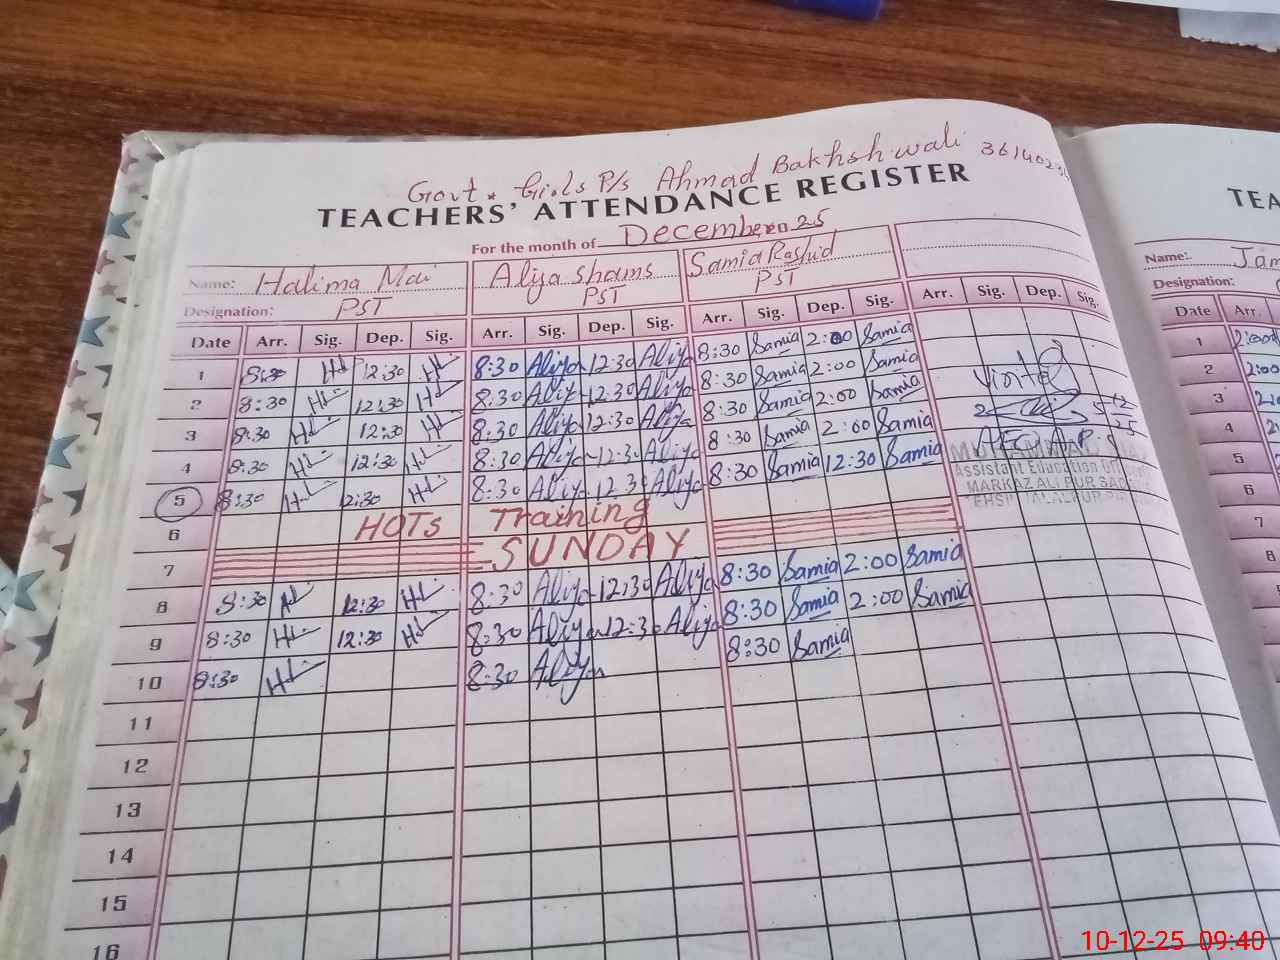 Govt. Girls P/s Ahmad Bakhsh wali 3614023
TEACHERS' ATTENDANCE REGISTER
For the month of December 25
Name: Halima Mai Aliya Shams Samia Rashid
Designation: PST PST PST
Date Arr. Sig. Dep. Sig. Arr. Sig. Dep. Sig. Arr. Sig. Dep. Sig. Arr. Sig. Dep. Sig.
1 8:30 12:30 8:30 Aliya 12:30 Aliya 8:30 Samia 2:00 Samia
2 8:30 12:30 8:30 Aliya 12:30 Aliya 8:30 Samia 2:00 Samia
3 8:30 12:30 8:30 Aliya 12:30 Aliya 8:30 Samia 2:00 Samia
4 8:30 12:30 8:30 Aliya 12:30 Aliya 8:30 Samia 2:00 Samia
5 8:30 12:30 8:30 Aliya 12:30 Aliya 8:30 Samia 12:30 Samia
6 HOTs Training
7 SUNDAY
8 8:30 12:30 8:30 Aliya 12:30 Aliya 8:30 Samia 2:00 Samia
9 8:30 12:30 8:30 Aliya 12:30 Aliya 8:30 Samia 2:00 Samia
10 8:30 8:30 Aliya 8:30 Samia
11
12
13
14
15
16
Visited
5 12 25
MUHAMMAD
Assistant Education
MARKAZ ALI PUR
JALALPUR
TEA
Name: Jam
Designation:
Date Arr.
1 2:00
2 2:00
3
4
5
6
7
8
9
10
11
12
13
10-12-25 09:40